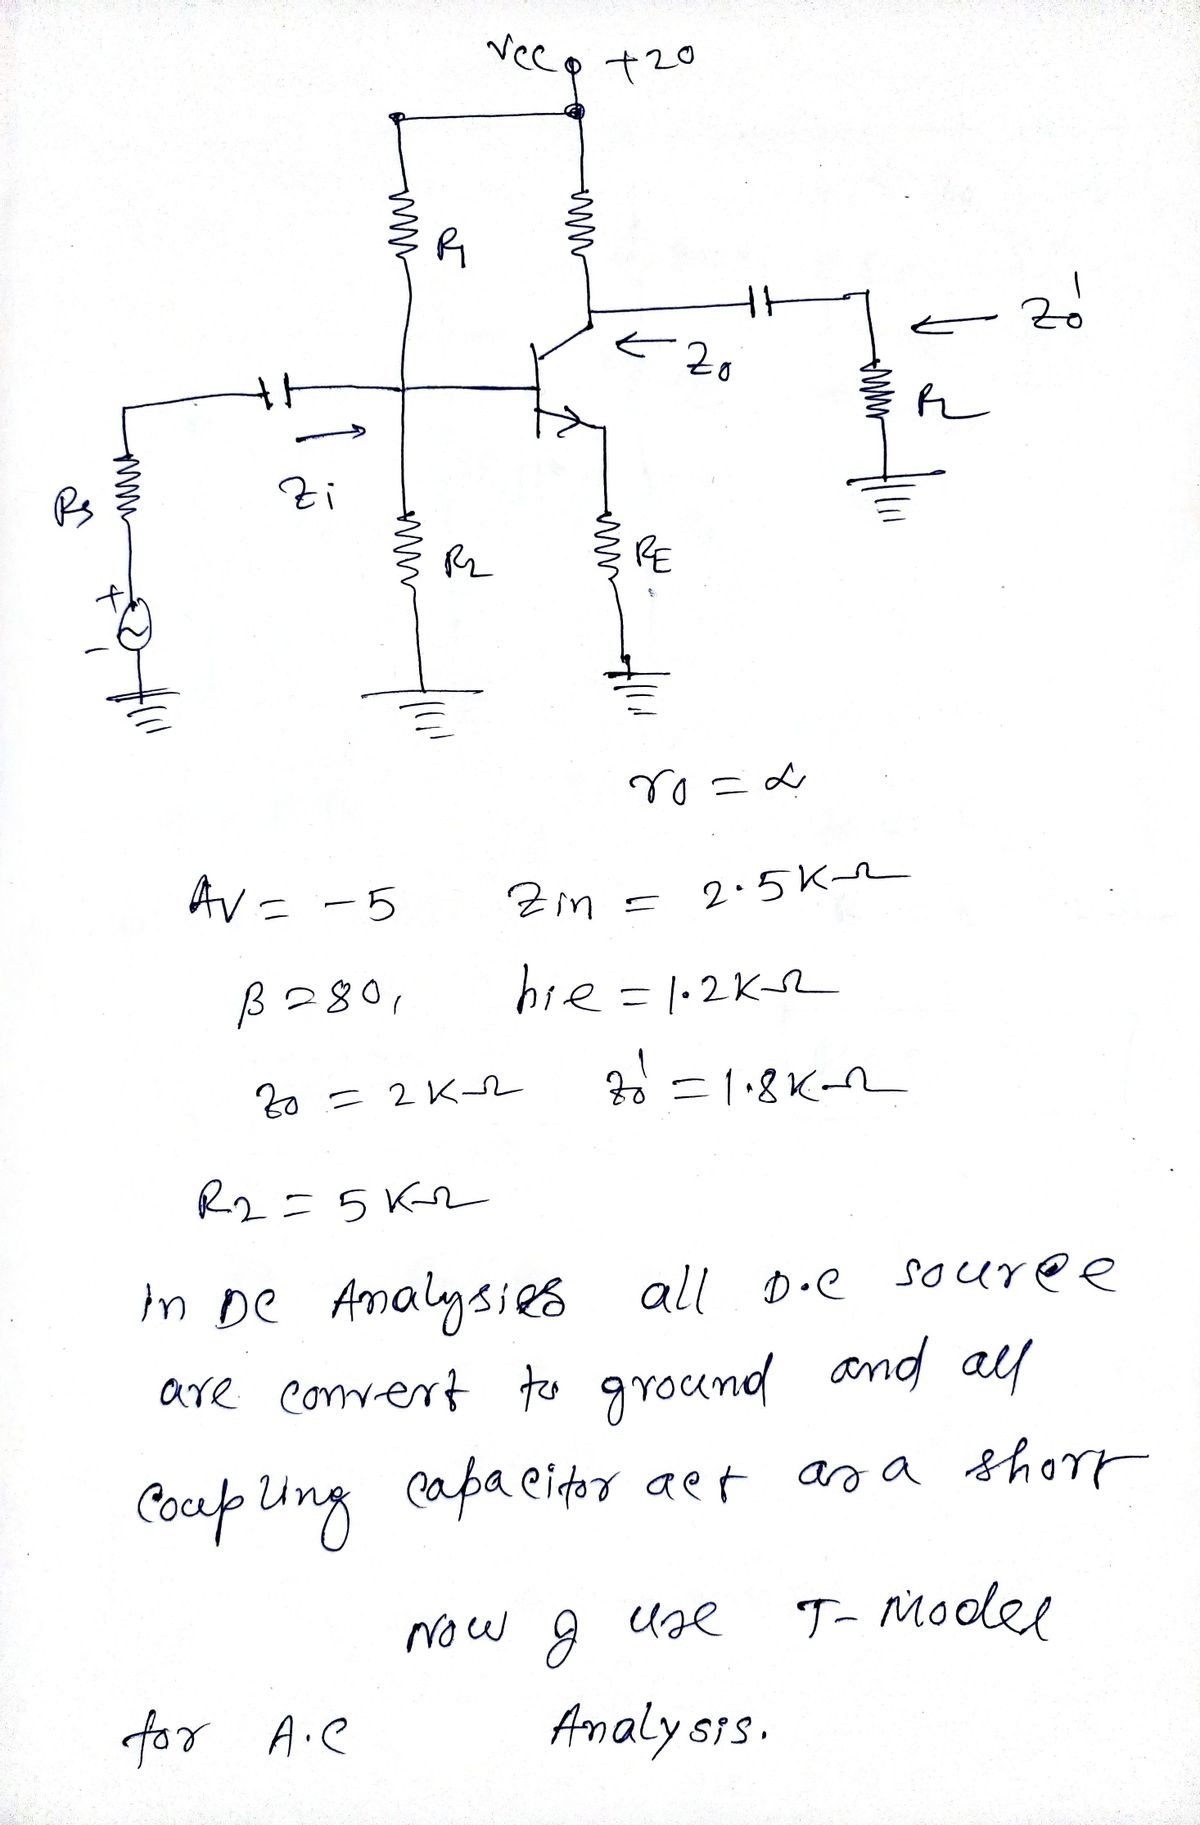 Vcc +20
R1
Zo'
Zo
RL
Rs
Zi
R2
RE
+
-
ro = α
Av = -5 Zin = 2.5KΩ
β = 80, hie = 1.2KΩ
Zo = 2KΩ Zo' = 1.8KΩ
R2 = 5KΩ
in DC Analysies all D.C source
are convert to ground and all
Coupling capacitor act as a short
Now I use T-Model
for A.C Analysis.